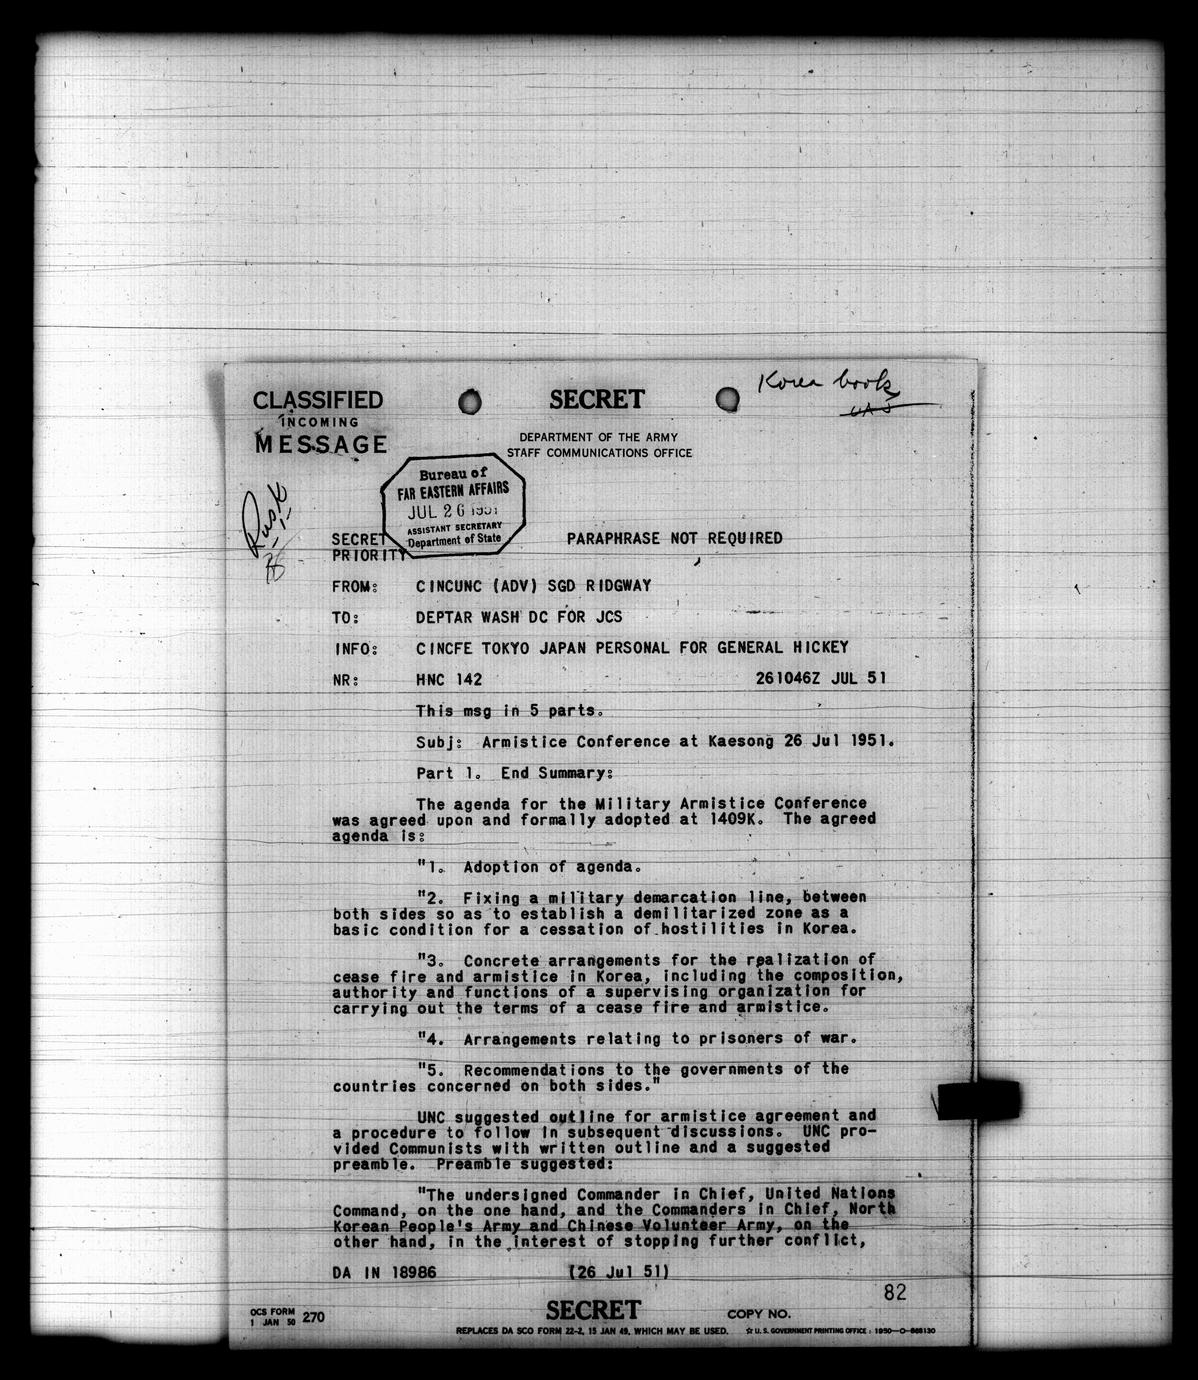 Korea book
CLASSIFIED
INCOMING
MESSAGE
SECRET
DEPARTMENT OF THE ARMY
STAFF COMMUNICATIONS OFFICE
Rusk
Bureau of
FAR EASTERN AFFAIRS
JUL 26 1951
ASSISTANT SECRETARY
Department of State
SECRET PARAPHRASE NOT REQUIRED
PRIORITY
FROM: CINCUNC (ADV) SGD RIDGWAY
TO: DEPTAR WASH DC FOR JCS
INFO: CINCFE TOKYO JAPAN PERSONAL FOR GENERAL HICKEY
NR: HNC 142 261046Z JUL 51
This msg in 5 parts.
Subj: Armistice Conference at Kaesong 26 Jul 1951.
Part 1. End Summary:
The agenda for the Military Armistice Conference
was agreed upon and formally adopted at 1409K. The agreed
agenda is:
"1. Adoption of agenda.
"2. Fixing a military demarcation line, between
both sides so as to establish a demilitarized zone as a
basic condition for a cessation of hostilities in Korea.
"3. Concrete arrangements for the realization of
cease fire and armistice in Korea, including the composition,
authority and functions of a supervising organization for
carrying out the terms of a cease fire and armistice.
"4. Arrangements relating to prisoners of war.
"5. Recommendations to the governments of the
countries concerned on both sides."
UNC suggested outline for armistice agreement and
a procedure to follow in subsequent discussions. UNC pro-
vided Communists with written outline and a suggested
preamble. Preamble suggested:
"The undersigned Commander in Chief, United Nations
Command, on the one hand, and the Commanders in Chief, North
Korean People's Army and Chinese Volunteer Army, on the
other hand, in the interest of stopping further conflict,
DA IN 18986 (26 Jul 51)
82
SECRET
COPY NO.
OCS FORM 270
1 JAN 50
REPLACES DA SCO FORM 22-2, 15 JAN 49, WHICH MAY BE USED. ☆ U. S. GOVERNMENT PRINTING OFFICE : 1950—O-868130